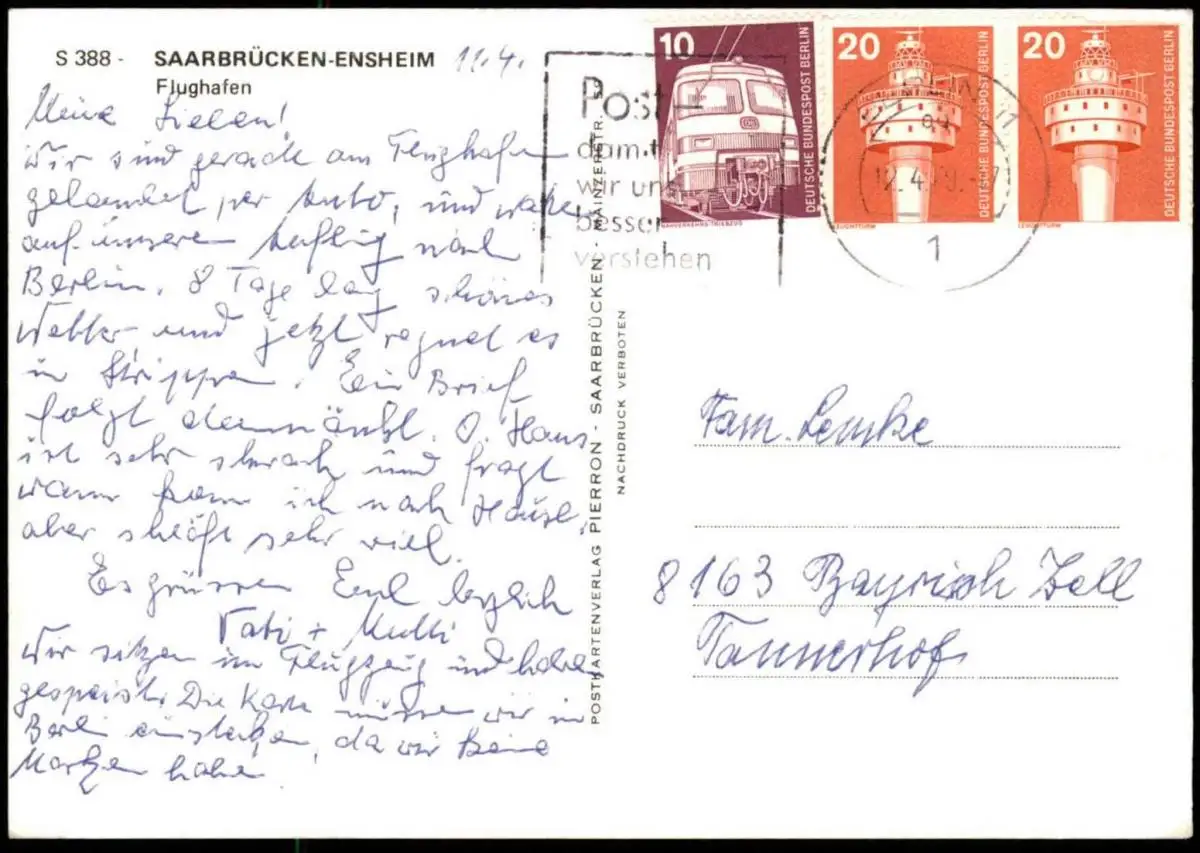 S 388 - SAARBRÜCKEN-ENSHEIM 11.4.
Flughafen
Meine Lieben!
Wir sind gerade am Flughafen
gelandet per Auto, und
auf unseren nach
Berlin. 8 Tage lag schönes
Wetter und jetzt regnet es
in Strippen. Ein Brief
folgt demnächst. O. Hans
ist sehr und fragt
wann kann ich nach Hause,
aber schläft sehr viel.
Es grüssen Euch herzlich
Vati + Mutti
Wir sitzen im Flugzeug und haben
gespeist. Die Karte müssen wir in
Berlin einstecken, da wir keine
Marken habe
POSTKARTENVERLAG PIERRON - SAARBRÜCKEN - MAINZERSTR.
NACHDRUCK VERBOTEN
Post -
damit
wir uns
besser
verstehen
10
DEUTSCHE BUNDESPOST BERLIN
NAHVERKEHRS-TRIEBZUG
20
DEUTSCHE BUNDESPOST BERLIN
LEUCHTTURM
20
DEUTSCHE BUNDESPOST BERLIN
LEUCHTTURM
1
Fam. Lemke
8163 Bayrisch Zell
Tannerhof